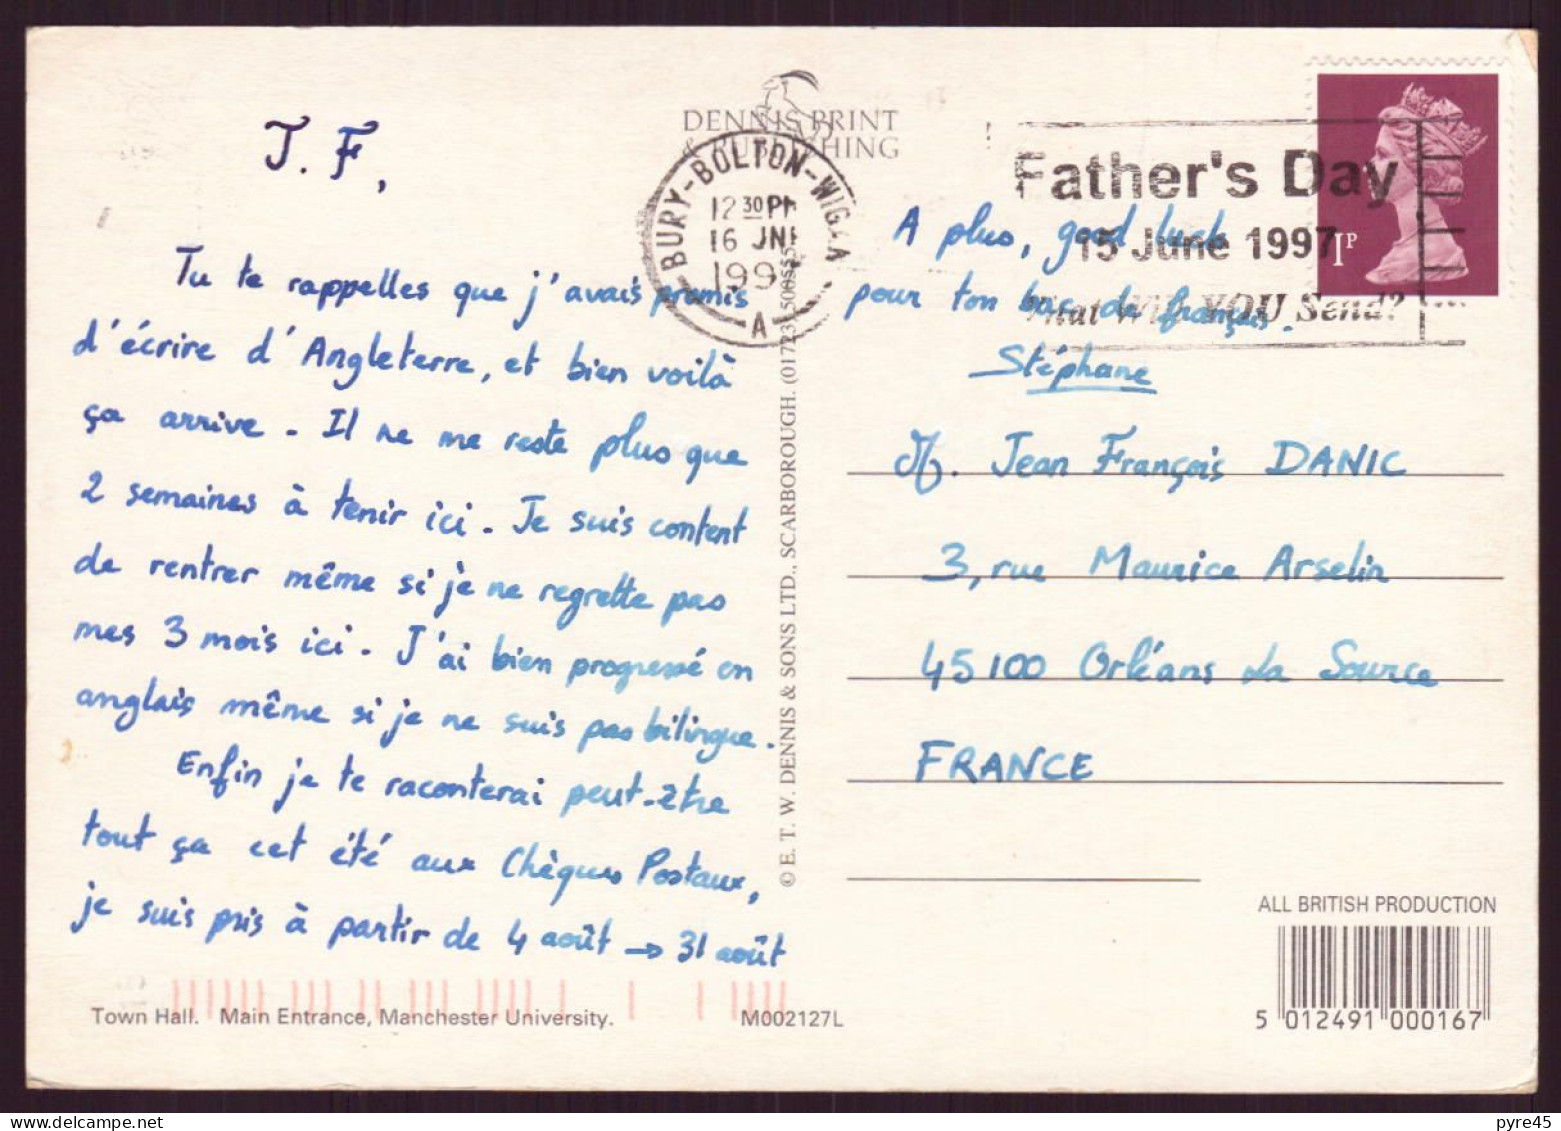 J. F,
Tu te rappelles que j'avais promis
d'écrire d'Angleterre, et bien voilà
ça arrive. Il ne me reste plus que
2 semaines à tenir ici. Je suis content
de rentrer même si je ne regrette pas
mes 3 mois ici. J'ai bien progressé en
anglais même si je ne suis pas bilingue.
Enfin je te raconterai peut-être
tout ça cet été aux Chèques Postaux,
je suis pris à partir de 4 août → 31 août
Town Hall. Main Entrance, Manchester University.
M002127L
DENNIS PRINT
& PUBLISHING
BURY-BOLTON-WIGAN
12 30 PM
16 JNE
1997
A
© E. T. W. DENNIS & SONS LTD., SCARBOROUGH. (01723) 500555
Father's Day
15 June 1997
What Will YOU Send?
1P
A plus, good luck
pour ton bac de français.
Stéphane
M. Jean François DANIC
3, rue Maurice Arselin
45100 Orléans La Source
FRANCE
ALL BRITISH PRODUCTION
5 012491 000167
pyre45